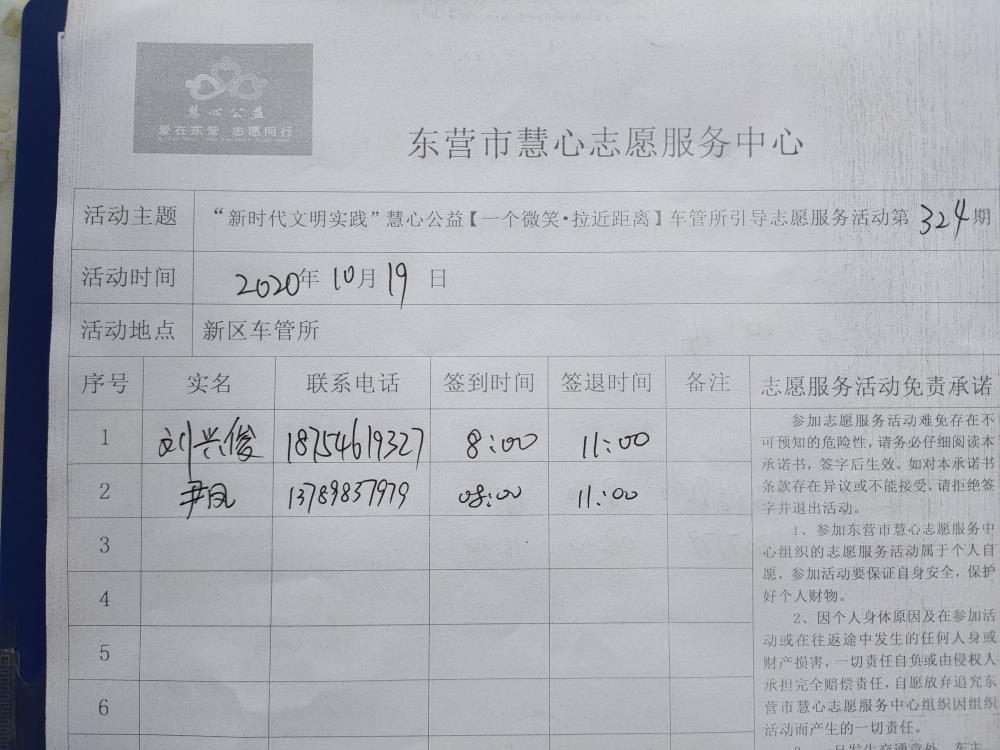 慧心公益
爱在东营 志愿同行
东营市慧心志愿服务中心
活动主题 “新时代文明实践”慧心公益【一个微笑·拉近距离】车管所引导志愿服务活动第 324 期
活动时间 2020年 10月 19 日
活动地点 新区车管所
序号 实名 联系电话 签到时间 签退时间 备注 志愿服务活动免责承诺
1 刘兴俊 18754619327 8:00 11:00
2 尹凤 13789837979 08:00 11:00
3
4
5
6
参加志愿服务活动难免存在不
可预知的危险性,请务必仔细阅读本
承诺书,签字后生效。如对本承诺书
条款存在异议或不能接受,请拒绝签
字并退出活动。
1、参加东营市慧心志愿服务中
心组织的志愿服务活动属于个人自
愿,参加活动要保证自身安全,保护
好个人财物。
2、因个人身体原因及在参加活
动或在往返途中发生的任何人身或
财产损害,一切责任自负或由侵权人
承担完全赔偿责任,自愿放弃追究东
营市慧心志愿服务中心组织因组织
活动而产生的一切责任。